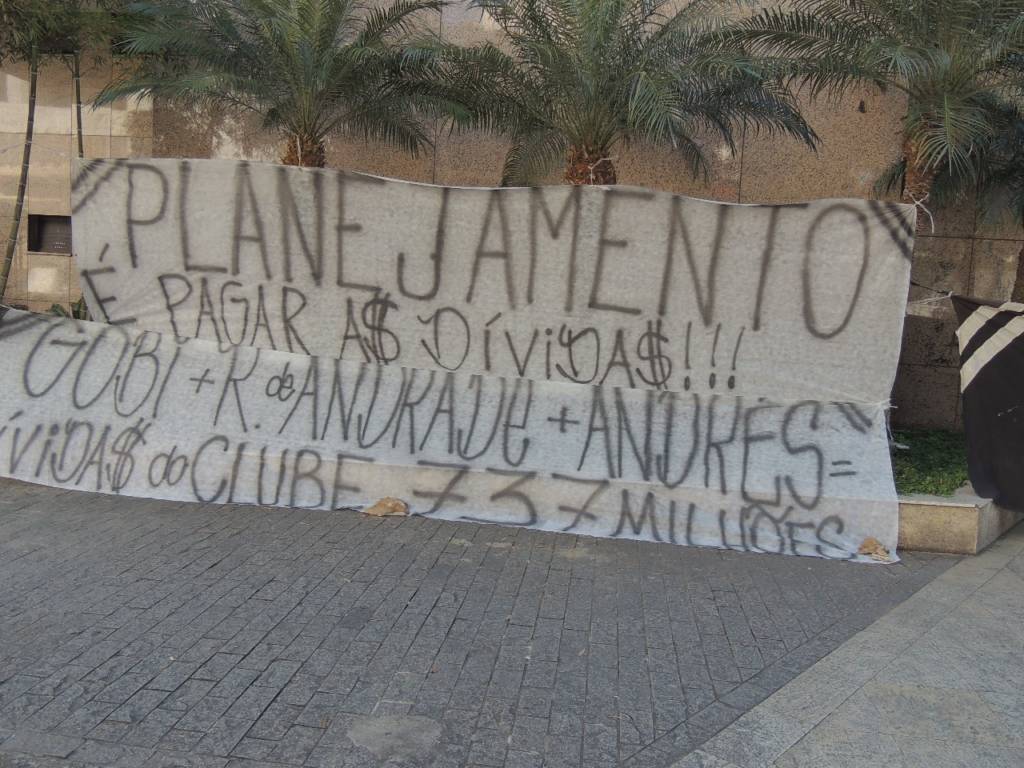 PLANEJAMENTO
É PAGAR A$ DíViDA$!!!
GOBI + R. de ANDRADE + ANDRÉS =
íViDA$ do CLUBE 737 MILHÕES